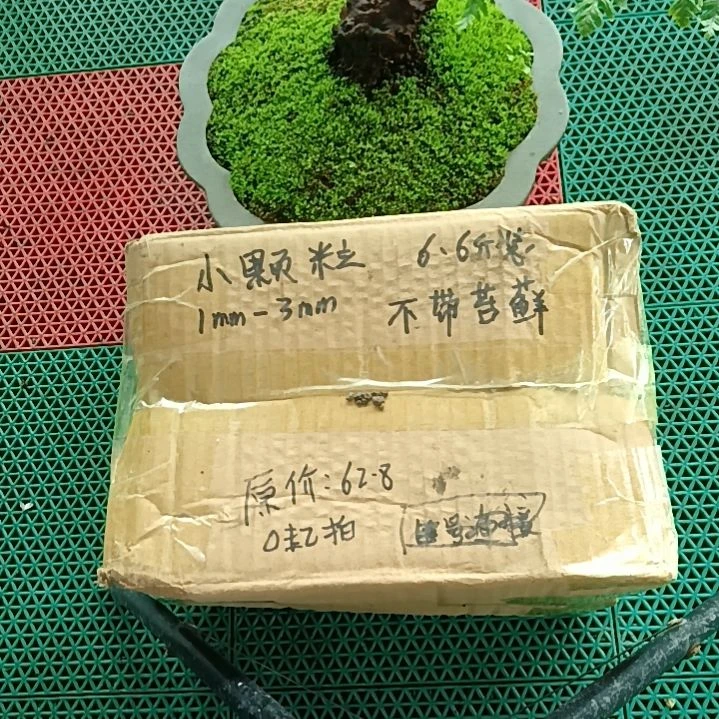 小颗粒 6.6斤装
1mm-3mm 不带苔藓
原价:62.8
0起拍